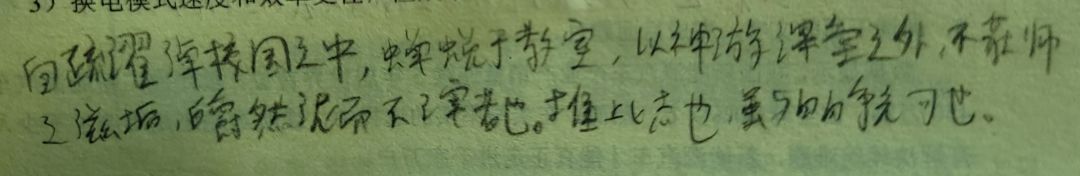 3)换电模式速度和效率更
自疏濯淖校园之中,蝉蜕于教室,以神游课堂之外,不获师
之滋垢,皭然泥而不滓者也。推此志也,虽与日月争光可也。